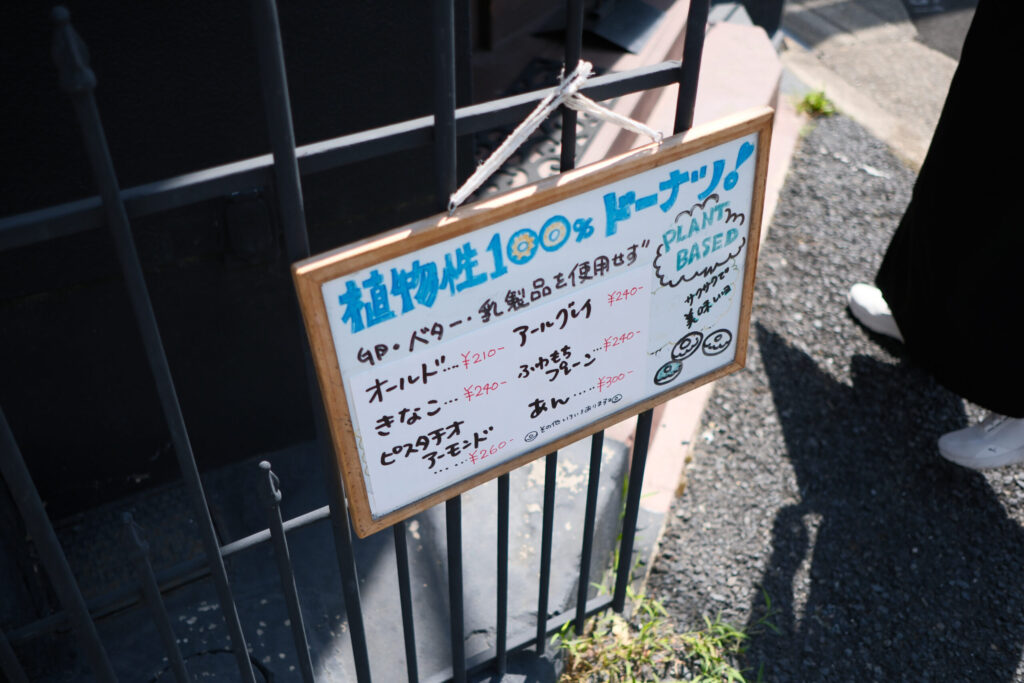 植物性100%ドーナツ!
卵・バター・乳製品を使用せず
PLANT
BASED
サクサクで
美味いよ
オールド....¥210-
きなこ...¥240-
ピスタチオ
アーモンド
......¥260-
アールグレイ
¥240-
ふわもち
プレーン...¥240-
あん.....¥300-
その他いろいろあります